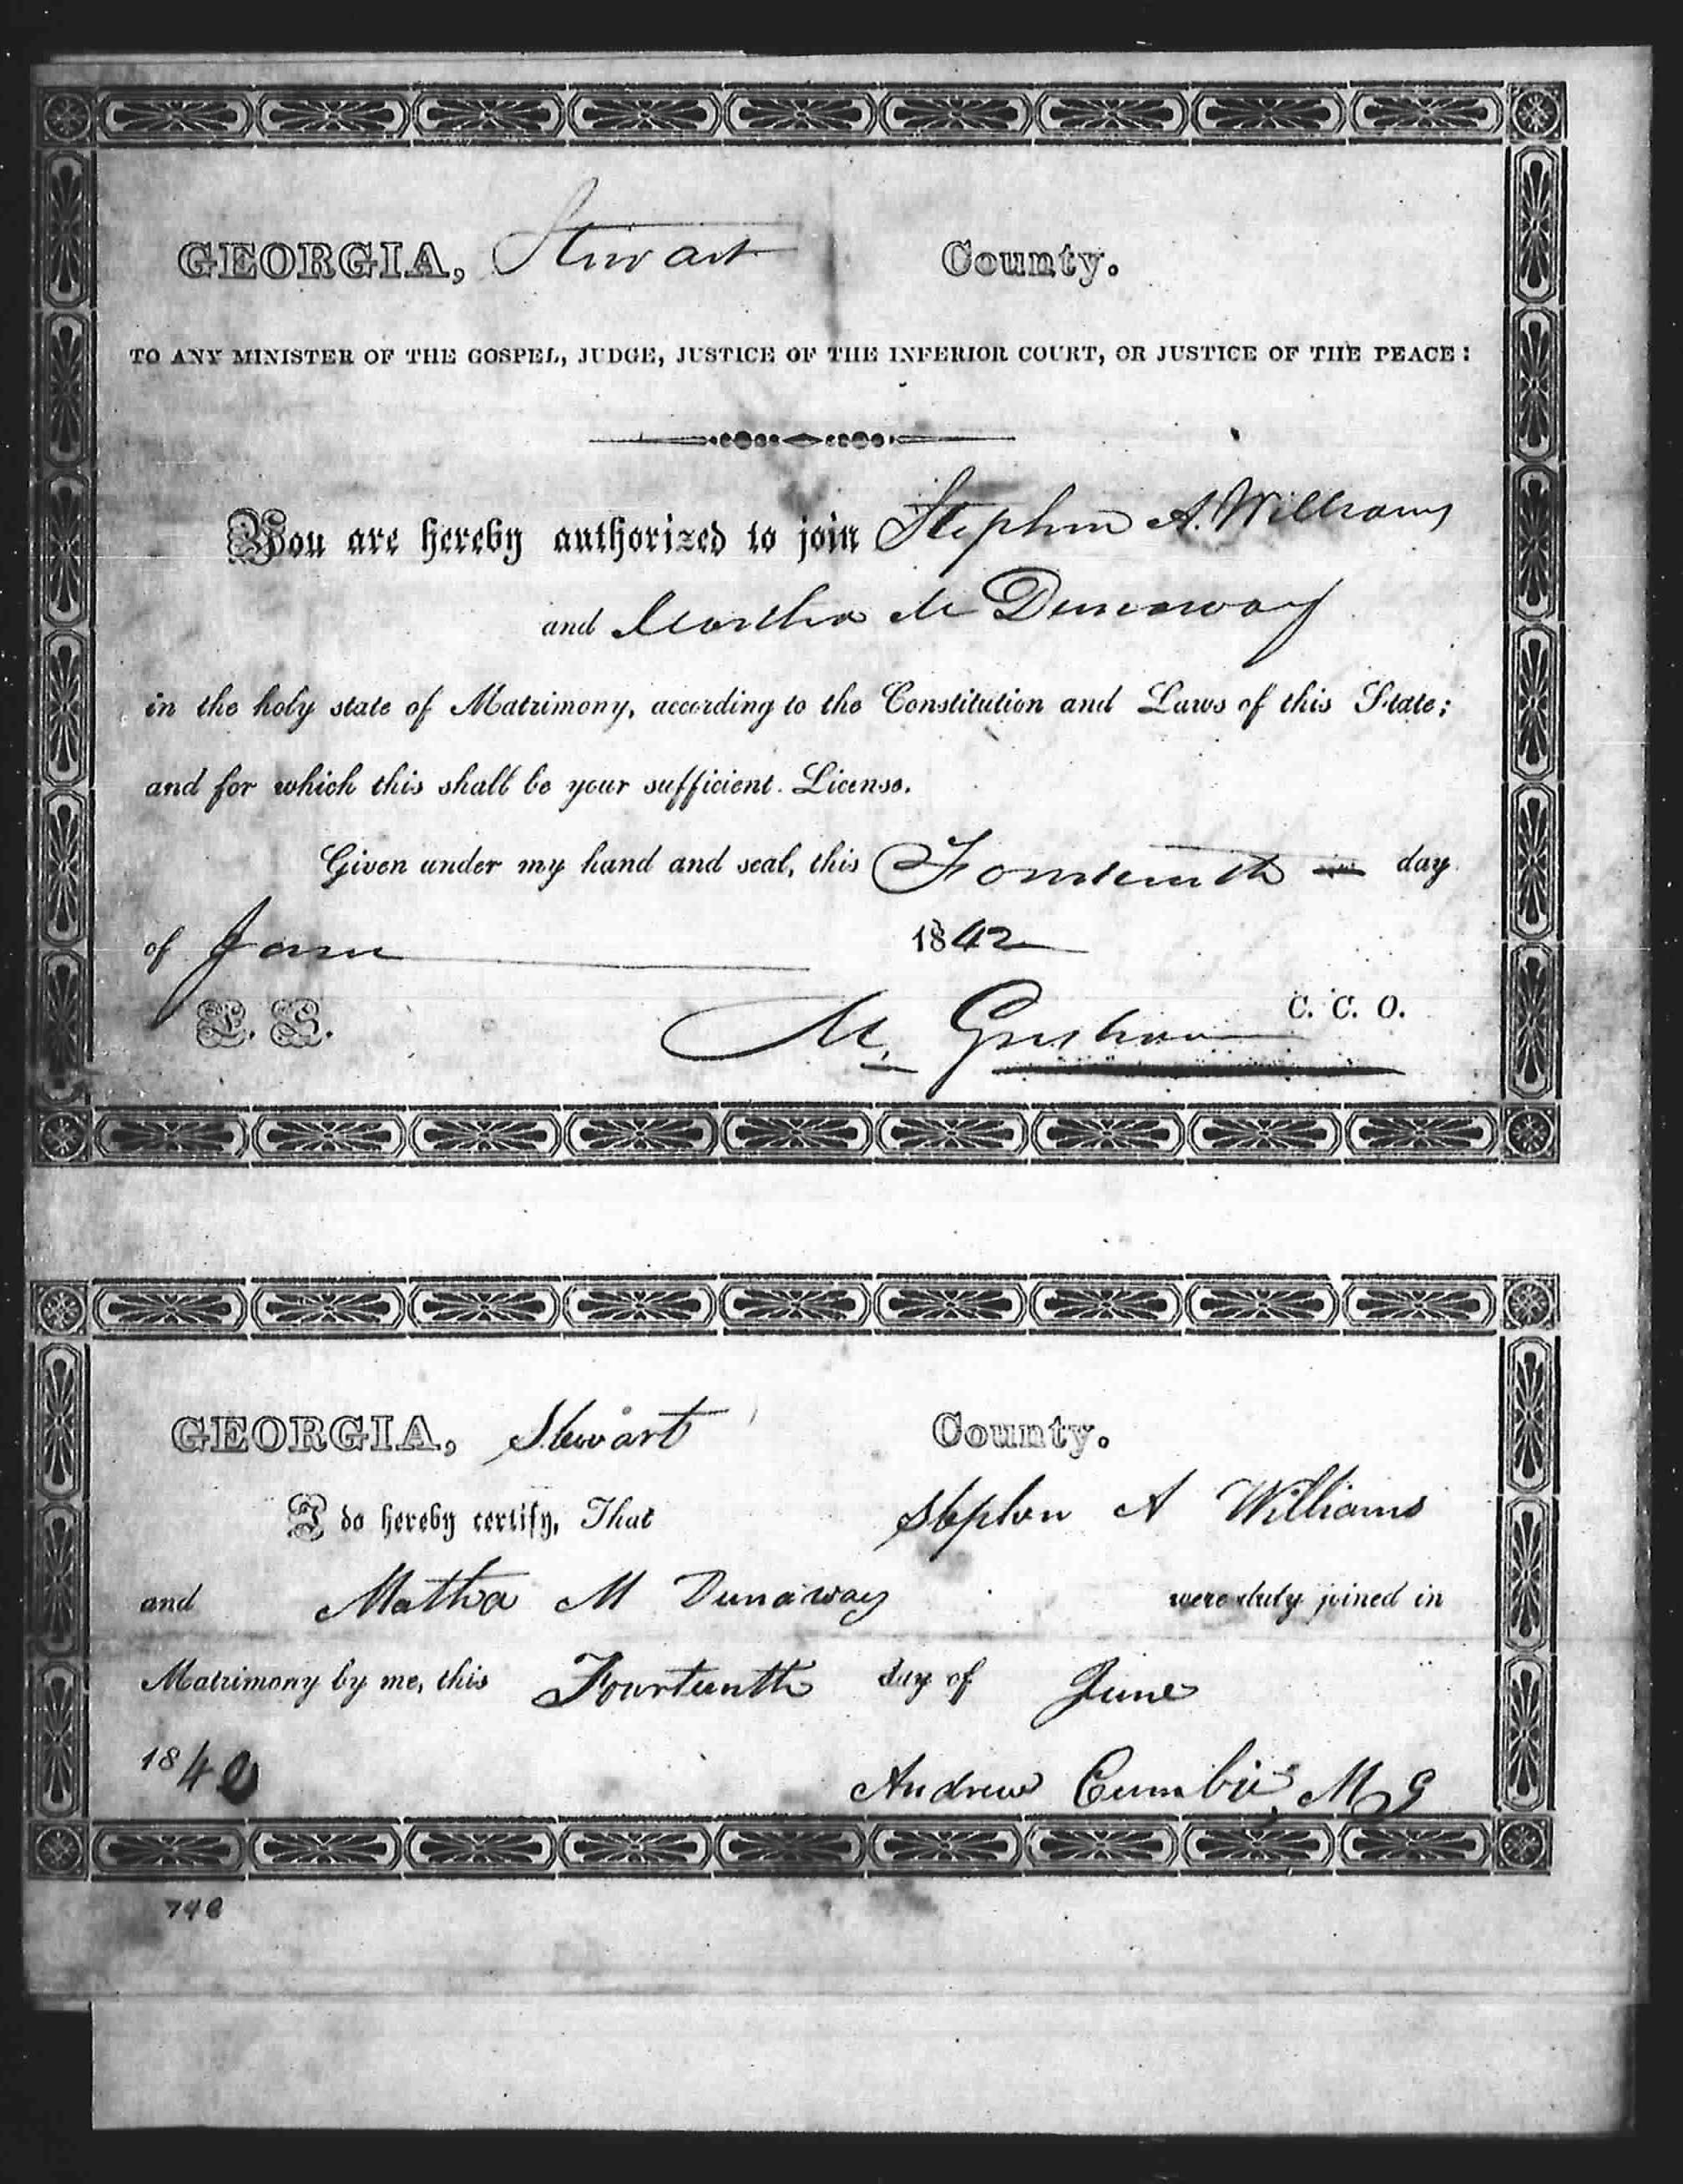 GEORGIA, Stewart County.
TO ANY MINISTER OF THE GOSPEL, JUDGE, JUSTICE OF THE INFERIOR COURT, OR JUSTICE OF THE PEACE:
You are hereby authorized to join Stephen A. Williams
and Martha M Dunaway
in the holy state of Matrimony, according to the Constitution and Laws of this State;
and for which this shall be your sufficient License.
Given under my hand and seal, this Fourteenth day
of June 1842
L. S. M. Gresham C. C. O.
GEORGIA, Stewart County.
I do hereby certify, That Stephen A Williams
and Matha M Dunaway were duly joined in
Matrimony by me, this Fourteenth day of June
184
Andrew Cumbie, M G